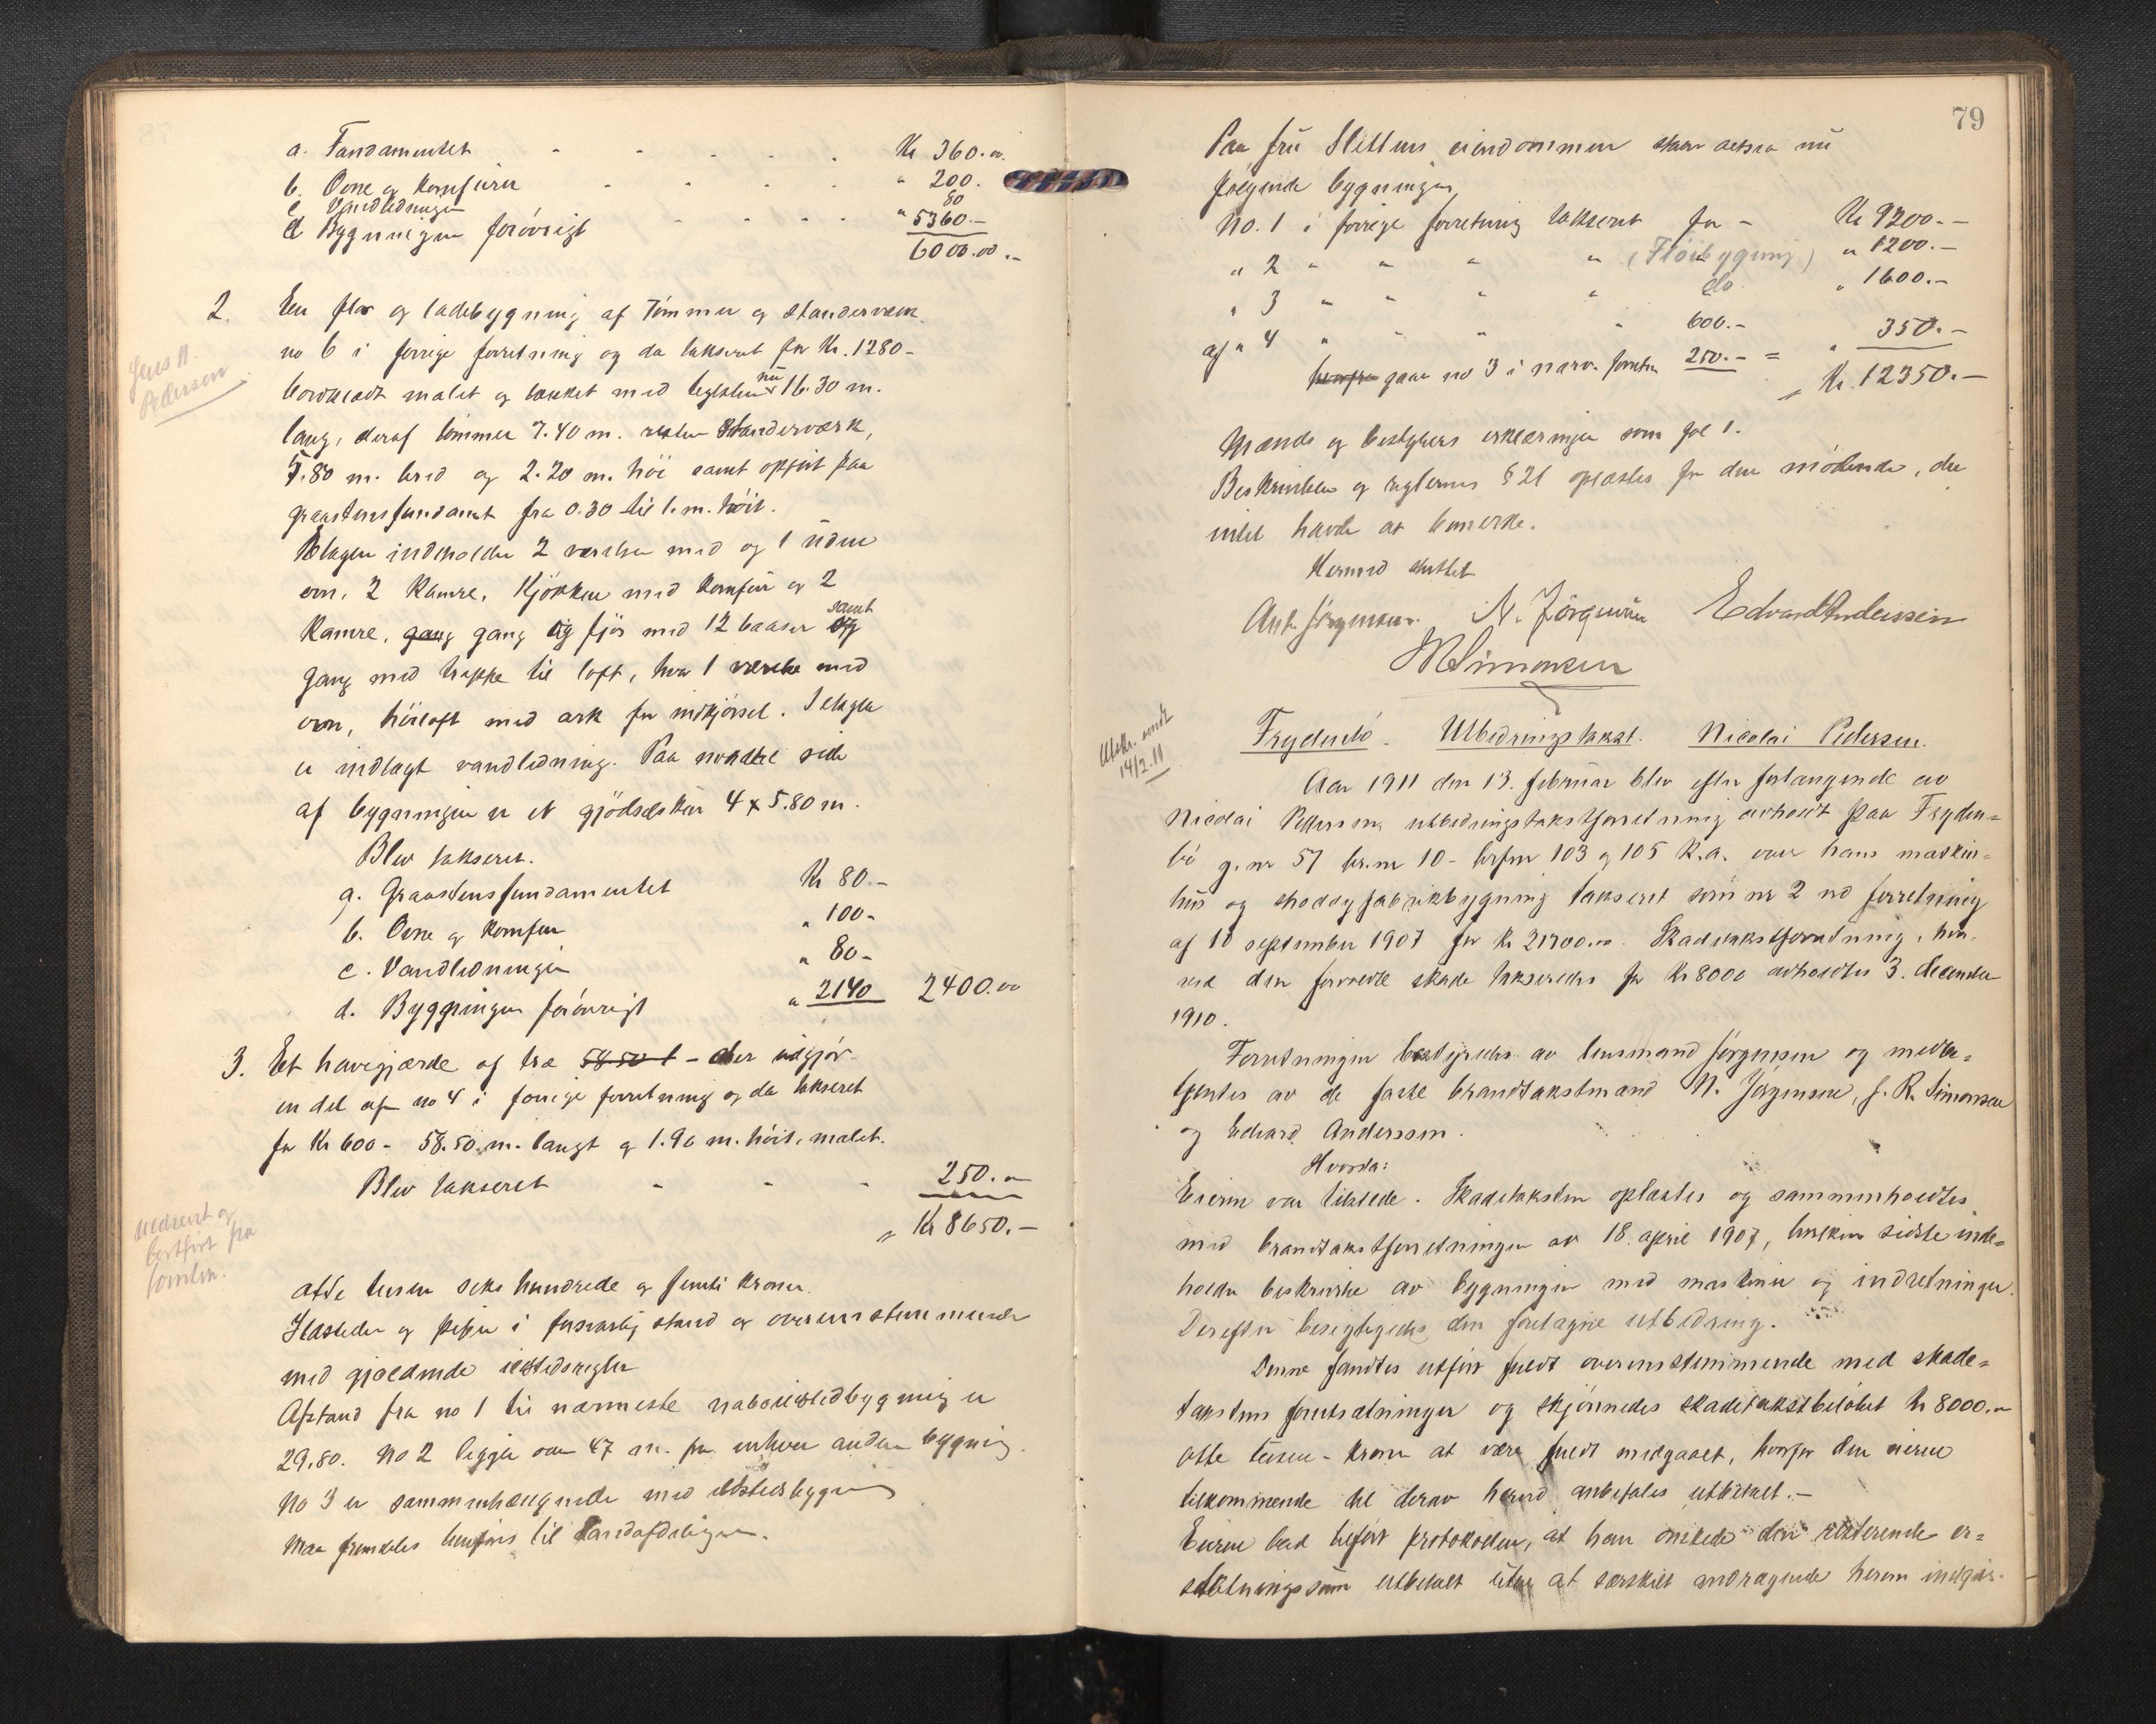 a. Fundamentet - - - - - Kr 360.00
b. Ovne og komfurer - - - - " 200.
c Vandledningen 80
d Bygningen forövrigt - - - - " 5360.-
6000.00.-
2. En flor og ladebygning af Tömmer og standerværk
no 6 i forrige forretning og da takseret for Kr. 1280-
Jens H.
Pedersen
bordklædt malet og tækket med teglsten nu 16.30 m.
lang, deraf tömmer 7.40 m. resten Standerværk,
7.80 m. bred og 2.20 m. höi samt opfört paa
graastensfundament fra 0.30 til 1. m. höit.
Etagen indeholder 2 værelser med og 1 uden
ovn. 2 Kamre. Kjökken med komfur og 2
Kamre, gang gang og fjös med 12 baaser og samt
gang med trappe til loft, hvor 1 værelse med
ovn, höiloft med ark for indkjörsel. I etagen
er indlagt vandledning. Paa nordre side
af bygningen er et gjödselskur 4 x 5.80 m.
Blev takseret.
a. Graastensfundamentet Kr 80.-
b. Ovne og komfur " 100-
c. Vandledningen " 80-
d. Byggningen forövrigt " 2140 2400.00
3. Et havegjærde af træ 58.50 l - der udgjör
en del af no 4 i forrige forretning og da takseret
for Kr 600- 58.50 m. langt og 1.90 m. höit, malet.
Blev takseret - - - 250.00
Kr 8650.-
Nedrevet og
bortfört fra
tomten.
otte tusen seks hundrede og femti kroner.
Ildsteder og piper i forsvarlig stand og overensstemmende
med gjældende ildstedsregler
Afstand fra no 1 til nærmeste naboildstedbygning er
29.80. No 2 ligger over 47 m. fra enhver anden bygning.
No 3 er sammenhængende med ildstedsbygn
Maa fremdeles henföres til landafdelingen.
79
Paa fru Slettens eiendommer staar altsaa nu
fölgende bygninger
No. 1 i forrige forretning takseret for - Kr 9200.-
" 2 " " " " (Flöibygning) " 1200.-
" 3 " " " " do " 1600.-
af " 4 " " " " 600.-
herfra gaar no 3 i nærv. forretn 250.- = " 350.-
Kr. 12350.-
Mænds og bestyrers erklæringer som fol 1.
Beskrivelsen og reglernes § 21 oplæstes for den mödende, der
intet havde at bemerke.
Hermed sluttet
Ant. Jörgensen. N. Jörgensen Edvard Anderssen
J R Simonsen
Utskr. sendt
14/2. 11
Frydenbö. Utbedringstakst. Nicolai Pedersen.
Aar 1911 den 13. februar blev efter forlangende av
Nicolai Pedersen utbedringstakstforretning avholdt paa Fryden=
bö g.nr 57 br.nr 10- brfnr 103 og 105 K.a. over hans maskin=
hus og shoddyfabrikbygning takseret som nr 2 ved forretning
af 18 september 1907 for kr 21700.00. Skadetakstforretning, hvor
ved den forvoldte skade takseredes for Kr 8000 avholdtes 3. december
1910.
Forretningen bestyredes av lensmand Jörgensen og medta=
gentes av de faste brandtakstmænd N. Jörgensen, J. R. Simonsen
og Edvard Anderssen.
Hvorda:
Eieren var tilstede. Skadetaksten oplæstes og sammenholdtes
med brandtakstforretningen av 18. april 1907, hvilken sidste inde=
holder beskrivelse av bygningen med maskiner og indretninger.
Derefter besigtigedes den foretagne utbedring.
Denne fandtes utfört fuldt overensstemmende med skade=
takstens forutsætninger og skjönnedes skadetakstbelöbet kr 8000.00
otte tusen - kroner at være fuldt medgaaet, hvorfor den eieren
tilkommende del derav herved anbefales utbetalt.-
Eieren bad tilfört protokollen, at han önskede den resterende er=
statningssum utbetalt uten at særskilt andragende herom indgis.